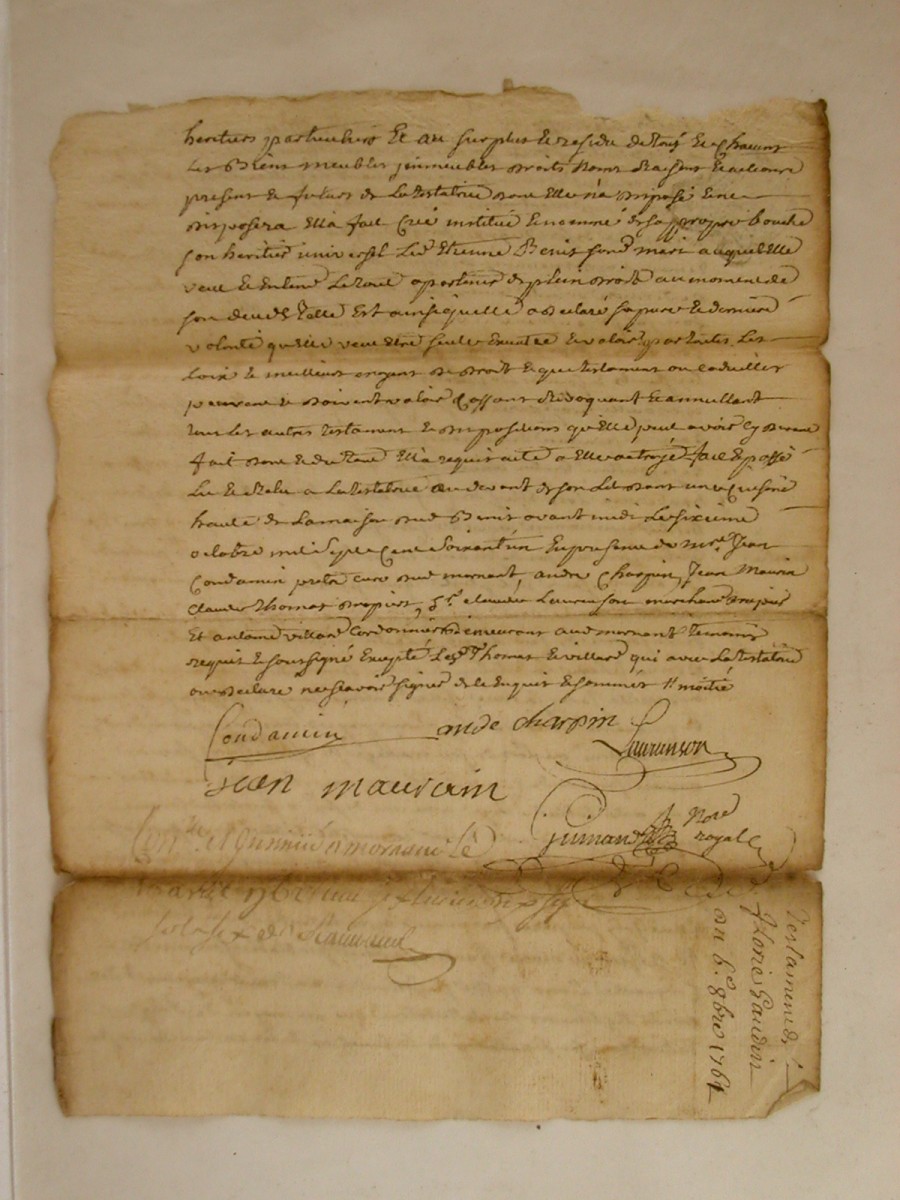 heritiers particuliers Et au surplus & residu de tous & chacuns
les Biens meubles immeubles droits noms raisons & actions
present & futurs de La testatrice dont Elle n'a disposé & ne
disposera Ella fait Creé institué & nommé de sa propre bouche
son heritier universel Led Etienne Benis son mari auquel Elle
veut & Entend Le tout apartenir de plein droit au moment de
son deces telle Est ainsi quelle a declaré sa pure & derniere
volonté qu'elle veut Etre Executée & valoir par toutes Les
Loix & meilleurs moyens de droit & que testament ou Codicilles
peuvent & doivent valoir Cassant Revoquant & annullant
tous Les autres testament & dispositions qu'Elle peut avoir Cy devant
fait dont & du tout Ella requis acte a Elle octroyé fait & passé
Lu & relu a La testatrice au devant de son Lit dans une
haute de La maison dud Benis avant midi Le sixieme
octobre mil Sept Cent Soixant'un En presence de mre Jean
Condamin pretre Curé dud mornant, andré Charpin, Jean Maurin
Claude Thomas drapier, Sr Laurenson marchand
Et antoine villard Cordonnier demeurant aud mornant temoins
requis & soussigné Excepté Lesd Thomas & villard qui avec La testatrice
ont declaré ne scavoir signer de ce Enquis & sommés
Condamin ande charpin
Laurenson
Jean maurain
Guinand Nore
royal
Conlle et
Testament d.
florie Gaudin
du 6e 8bre 1761